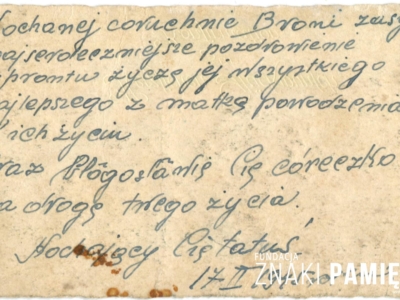 ochanej coruchnie Broni zasy
ajserdeczniejsze pozdrowienie
frontu życzę jej wszystkiego
ajlepszego z matką powodzenia
ich życiu.
raz błogosławię Cię córeczko
a drogę twego życia.
Kochający Cię tatuś
17 II
FUNDACJA
ZNAKI PAMIĘ